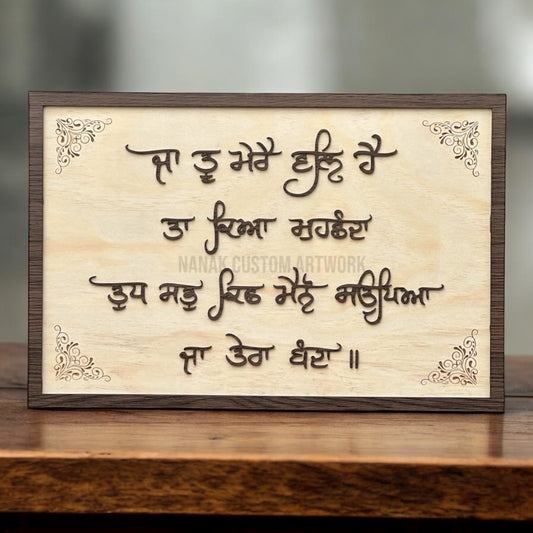 ਜਾ ਤੂ ਮੇਰੈ ਵਲਿ ਹੈ
ਤਾ ਕਿਆ ਮੁਹਛੰਦਾ
NANAK CUSTOM ARTWORK
ਤੁਧ ਸਭੁ ਕਿਛ ਮੈਨੋ ਸਉਪਿਆ
ਜਾ ਤੇਰਾ ਬੰਦਾ ॥